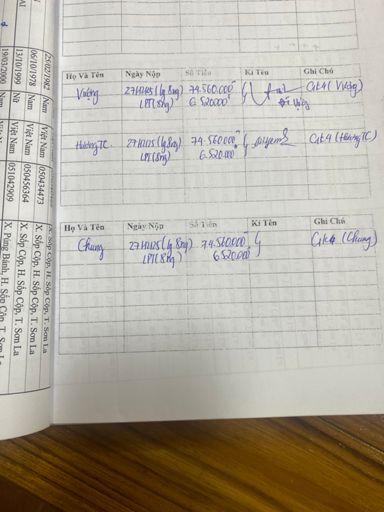 Họ Và Tên Ngày Nộp Số Tiền Kí Tên Ghi Chú
Vượng 27/11/25 (lg 8ng) 74.560.000đ Ck4 (Vượng)
LPT (8ng) 6.520.000
Hương TC 27/11/25 (lg 8ng) 74.560.000đ Ck4 (Hương TC)
LPT (8ng) 6.520.000
Họ Và Tên Ngày Nộp Số Tiền Kí Tên Ghi Chú
Chung 27/11/25 (lg 8ng) 74.560.000đ Ck4 (Chung)
LPT (8ng) 6.520.000
25/02/1982 Nam Việt Nam 050434473 X. Sốp Cộp, H. Sốp Cộp, T. Sơn La
06/10/1978 Nam Việt Nam 050456364 X. Sốp Cộp, H. Sốp Cộp, T. Sơn La
13/10/1999 Nữ Việt Nam 051042909 X. Sốp Cộp, H. Sốp Cộp, T. Sơn La
19/03/2000 Nam Việt Nam X. Púng Bánh, H. Sốp Cộp, T. Sơn La